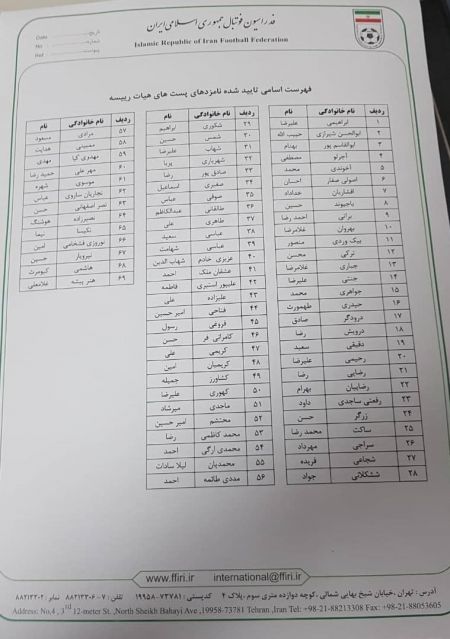 فدراسیون فوتبال جمهوری اسلامی ایران
Islamic Republic of Iran Football Federation
تاریخ
شماره
پیوست
Date
No
Ref
فهرست اسامی تایید شده نامزدهای پست های هیات رییسه
ردیف نام خانوادگی نام
۱ ابراهیمی علیرضا
۲ ابوالحسن شیرازی حبیب الله
۳ ابوالقاسم پور بهنام
۴ آجرلو مصطفی
۵ آخوندی محمد
۶ اصولی صفار احسان
۷ افشاریان خداداد
۸ باجیوند حسین
۹ براتی احمد رضا
۱۰ بهروان غلامرضا
۱۱ بیک وردی منصور
۱۲ ترکی محسن
۱۳ جباری غلامرضا
۱۴ جنتی علیرضا
۱۵ جواهری محمد
۱۶ حیدری طهمورث
۱۷ درودگر صادق
۱۸ درویش رضا
۱۹ دقیقی سعید
۲۰ رحیمی علیرضا
۲۱ رضایی رضا
۲۲ رضاییان بهرام
۲۳ رفعتی ساجدی داود
۲۴ زرگر حسن
۲۵ ساکت محمد رضا
۲۶ سراجی مهرداد
۲۷ شجاعی فریده
۲۸ ششکلانی جواد
ردیف نام خانوادگی نام
۲۹ شکوری ابراهیم
۳۰ شمس حسین
۳۱ شهاب علیرضا
۳۲ شهریاری پریا
۳۳ صادق پور رضا
۳۴ صفیری اسماعیل
۳۵ صوفی عباس
۳۶ طالقانی عبدالکاظم
۳۷ طاهری علی
۳۸ عباسی سعید
۳۹ عباسی شهامت
۴۰ عزیزی خادم شهاب الدین
۴۱ عشقان ملک احمد
۴۲ علیپور استیری فاطمه
۴۳ علیزاده علی
۴۴ فتاحی امیر حسین
۴۵ فروغی رسول
۴۶ کامرانی فر حسن
۴۷ کریمی علی
۴۸ کریمیان امین
۴۹ کشاورز جمیله
۵۰ کهوری علیرضا
۵۱ ماجدی میرشاد
۵۲ محتشم امیر حسین
۵۳ محمد کاظمی رضا
۵۴ محمدی ارگی احمد
۵۵ محمدیان لیلا سادات
۵۶ مددی طائمه احمد
ردیف نام خانوادگی نام
۵۷ مرادی مسعود
۵۸ ممبینی هدایت
۵۹ مهدوی کیا مهدی
۶۰ مهر علی حمید رضا
۶۱ موسوی شهره
۶۲ نجاریان ساروی عباس
۶۳ نصر اصفهانی حسن
۶۴ نصیرزاده هوشنگ
۶۵ نکیسا نیما
۶۶ نوروزی فشخامی امین
۶۷ نیرویار حسین
۶۸ هاشمی کیومرث
۶۹ هنر پیشه غلامعلی
www.ffiri.ir international@ffiri.ir
آدرس : تهران، خیابان شیخ بهایی شمالی، کوچه دوازده متری سوم، پلاک ۴ کدپستی : ۷۳۷۸۱-۱۹۹۵۸ تلفن : ۷-۸۸۲۱۳۳۰۶ نمابر : ۸۸۲۱۳۳۰۲
Address: No,4 , 3rd 12-meter St. ,North Sheikh Bahayi Ave.,19958-73781 Tehran ,Iran Tel: +98-21-88213308 Fax: +98-21-88053605